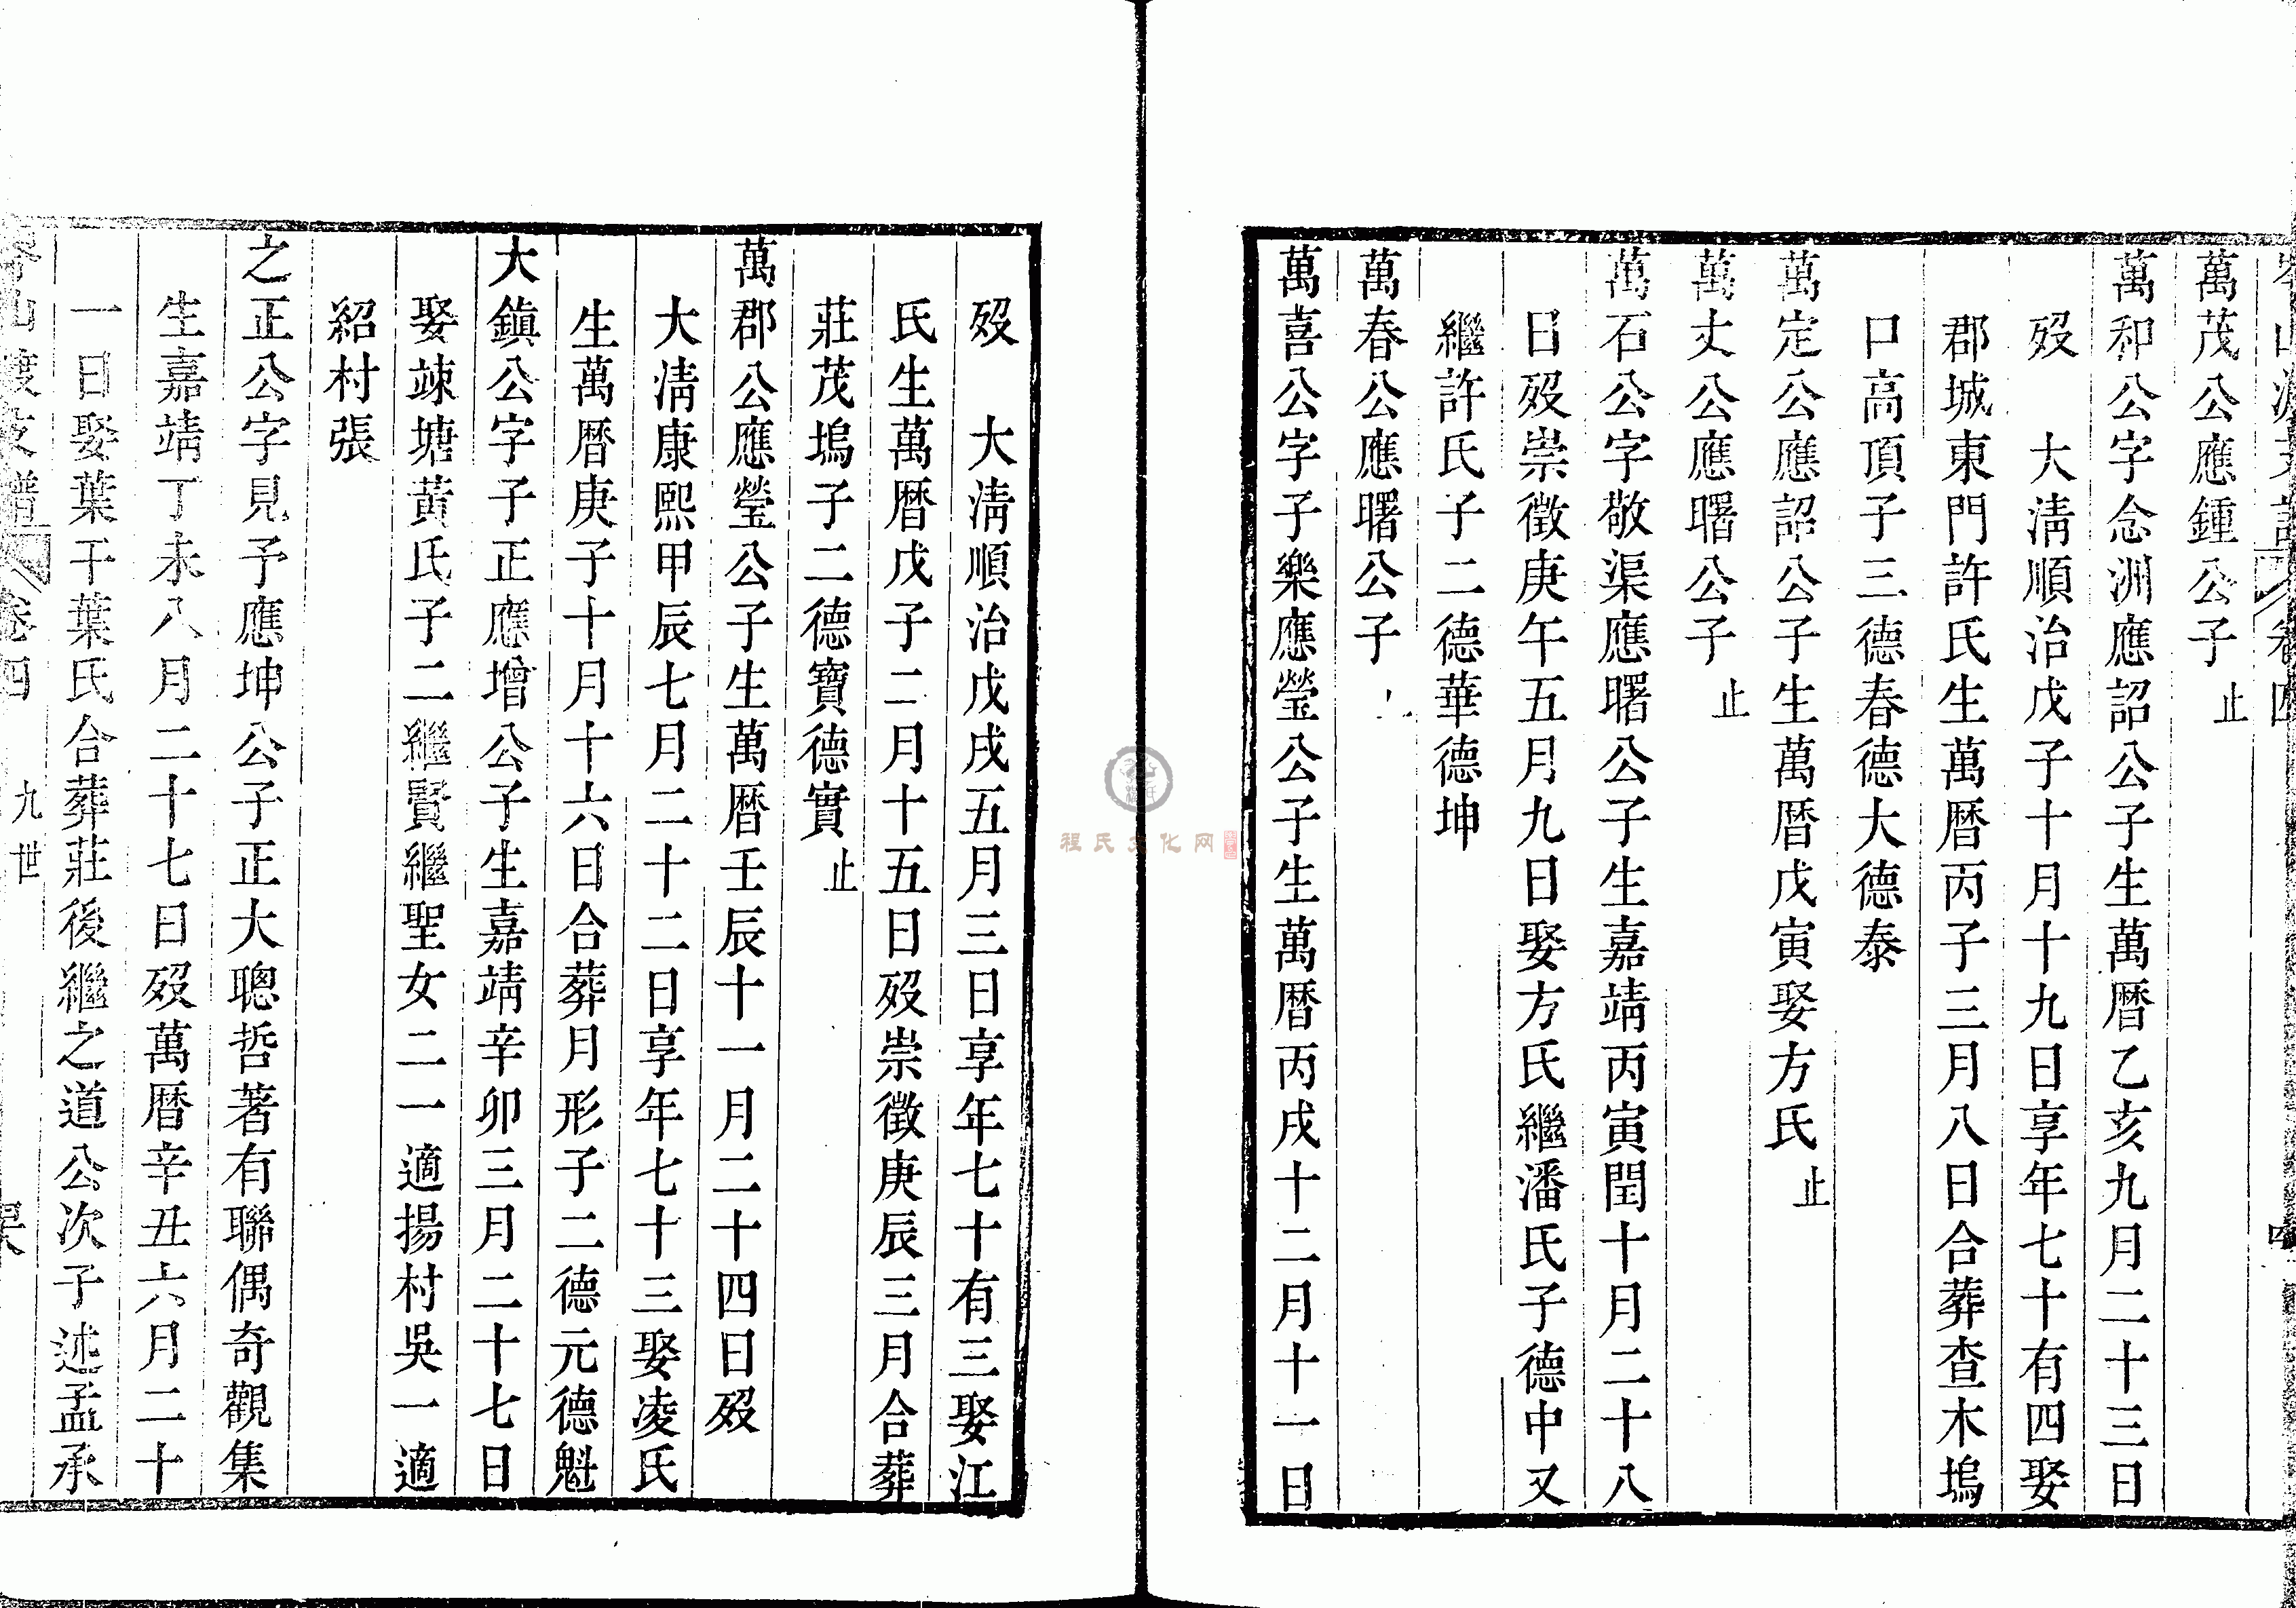 萬茂公應鍾公子 止
萬和公字念洲應詔公子生萬曆乙亥九月二十三日
歿 大淸順治戊子十月十九日享年七十有四娶
郡城東門許氏生萬曆丙子三月八日合葬查木塢
口高頂子三德春德大德泰
萬定公應詔公子生萬曆戊寅娶方氏 止
萬丈公應曙公子 止
萬石公字敬渠應曙公子生嘉靖丙寅閏十月二十八
日歿崇徵庚午五月九日娶方氏繼潘氏子德中又
繼許氏子二德華德坤
萬春公應曙公子
萬喜公字子樂應瑩公子生萬曆丙戌十二月十一日
歿 大淸順治戊戌五月三日享年七十有三娶江
氏生萬曆戊子二月十五日歿崇徵庚辰三月合葬
莊茂塢子二德寶德實 止
萬郡公應瑩公子生萬曆壬辰十一月二十四日歿
大淸康熙甲辰七月二十二日享年七十三娶凌氏
生萬曆庚子十月十六日合葬月形子二德元德魁
大鎮公字子正應增公子生嘉靖辛卯三月二十七日
娶竦塘黃氏子二繼賢繼聖女二一適揚村吳一適
紹村張
之正公字見予應坤公子正大聰哲著有聯偶奇觀集
生嘉靖丁未八月二十七日歿萬曆辛丑六月二十
一日娶葉干葉氏合葬莊後繼之道公次子述孟承
山渡支譜 卷四 九世
程氏文化网